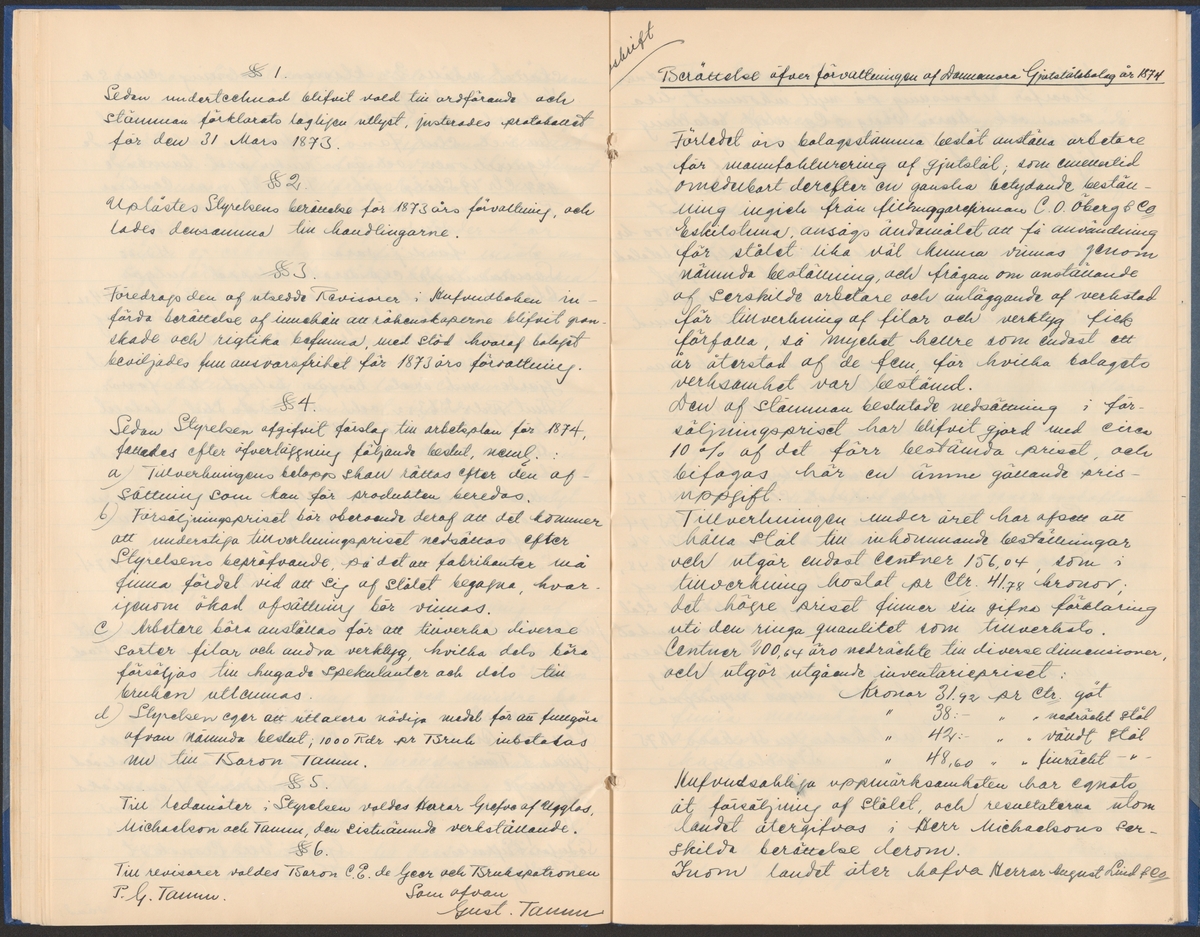 § 1.
Sedan undertecknad blifvit vald till ordförande och
stämman förklarats lagligen utlyst, justerades protokollet
för den 31 Mars 1873.
§ 2
Uplästes Styrelsens berättelse för 1873 års förvaltning, och
lades densamma till handlingarne.
§ 3.
Föredrogs den af utsedde Revisorer i Hufvudboken in-
förda berättelse af innehåll att räkenskaperne blifvit gran-
skade och rigtika befunna, med stöd hvaraf bolaget
beviljades full ansvarsfrihet för 1873 års förvaltning.
§ 4.
Sedan Styrelsen afgifvit förslag till arbetsplan för 1874,
fattades efter öfverläggning följande beslut, neml. :
a) Tillverkningens belopp skall rättas efter den af-
sättning som kan för produkten beredas.
b) Försäljningspriset bör oberoende deraf att det kommer
att understiga tillverkningspriset nedsättas efter
Styrelsens bepröfvande, på det att fabrikanter må
finna fördel vid att sig af stålet begagna, hvar-
igenom ökad afsättning bör vinnas.
c) Arbetare böra anställas för att tillverka diverse
sorter filar och andra verktyg, hvilka dels böra
försäljas till hugade spekulanter och dels till
bruken utlemnas.
d) Styrelsen eger att uttaxera nödiga medel för att fullgöra
ofvan nämnda beslut; 1000 Rdr pr Bruk inbetalas
nu till Baron Tamm.
§ 5.
Till Ledamöter i Styrelsen valdes Herrar Grefve af Ugglas,
Michaelson och Tamm, den sistnämnde verkställande.
§ 6.
Till revisorer valdes Baron C.E. de Geer och Brukspatronen
P. G. Tamm.
Som ofvan
Gust. Tamm
skrift
Berättelse öfver förvaltningen af Dannemora Gjutstålsbolag år 1874
Förledet års bolagsstämma beslöt anställa arbetare
för manufakturering af gjutstål; som emellertid
omedelbart derefter en ganska betydande beställ-
ning ingick från filhuggarefirman C. O. Öberg & Co
Eskilstuna, ansågs ändamålet att få användning
för stålet lika väl kunna vinnas genom
nämnda beställning, och frågan om anställande
af serskilde arbetare och anläggande af verkstad
för tillverkning af filar och verktyg fick
förfalla, så mycket hellre som endast ett
år återstod af de fem, för hvilka bolagets
verksamhet var bestämd.
Den af stämman beslutade nedsättning i för-
säljningspriset har blifvit gjord med circa
10 % af det förr bestämda priset, och
bifogas här en ännu gällande pris-
uppgift.
Tillverkningen under året har afsett att
hålla stål till inkommande beställningar
och utgör endast Centner 156,04, som i
tillverkning kostat pr Ctr. 41,78 kronor;
det högre priset finner sin gifna förklaring
uti den ringa quantitet som tillverkats.
Centner 100,64 äro nedräckte till diverse dimensioner,
och utgör utgående inventariepriset :
Kronor 31.92 pr Ctr. göt
" 38:- " " nedräckt stål
" 42:- " " vändt stål
" 48,60 " " finräckt -"-
Hufvudsakliga uppmärksamheten har egnats
åt försäljning af stålet, och resultaterna utom
landet återgifvas i Herr Michaelsons ser-
skilda berättelse derom.
Inom landet åter hafva Herrar August Lind & Co